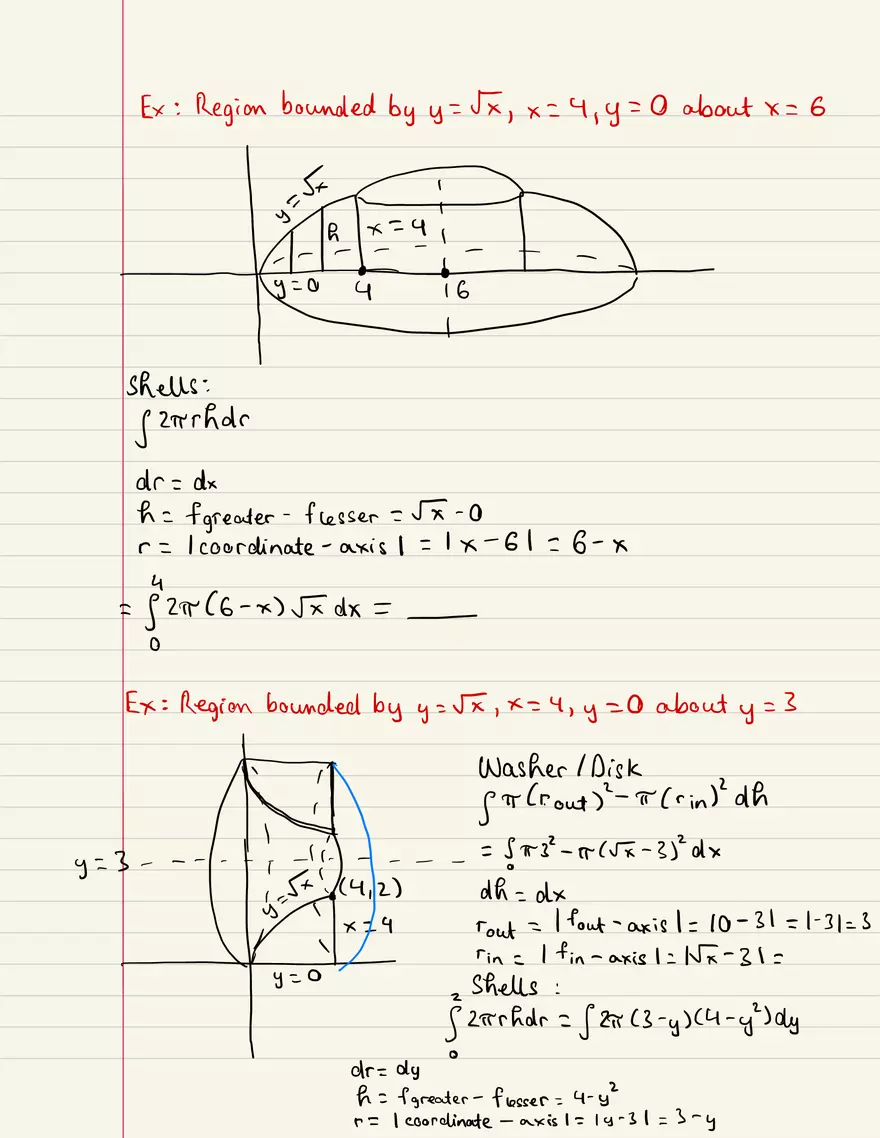 Ex: Region bounded by y=√x, x=4, y=0 about x=6
y=√x
h
x=4
y=0
4
6
Shells:
∫2πrhdr
dr = dx
h = fgreater - flesser = √x - 0
r = |coordinate - axis| = |x-6| = 6-x
= ∫₀⁴ 2π(6-x)√x dx = ____
Ex: Region bounded by y=√x, x=4, y=0 about y=3
y=3
y=√x
(4,2)
x=4
y=0
Washer/Disk
∫π(rout)² - π(rin)² dh
= ∫₀ π3² - π(√x-3)² dx
dh = dx
rout = |fout - axis| = |0-3| = |-3| = 3
rin = |fin - axis| = |√x-3| =
Shells:
∫₀² 2πrhdr = ∫2π(3-y)(4-y²)dy
dr = dy
h = fgreater - flesser = 4-y²
r = |coordinate - axis| = |y-3| = 3-y